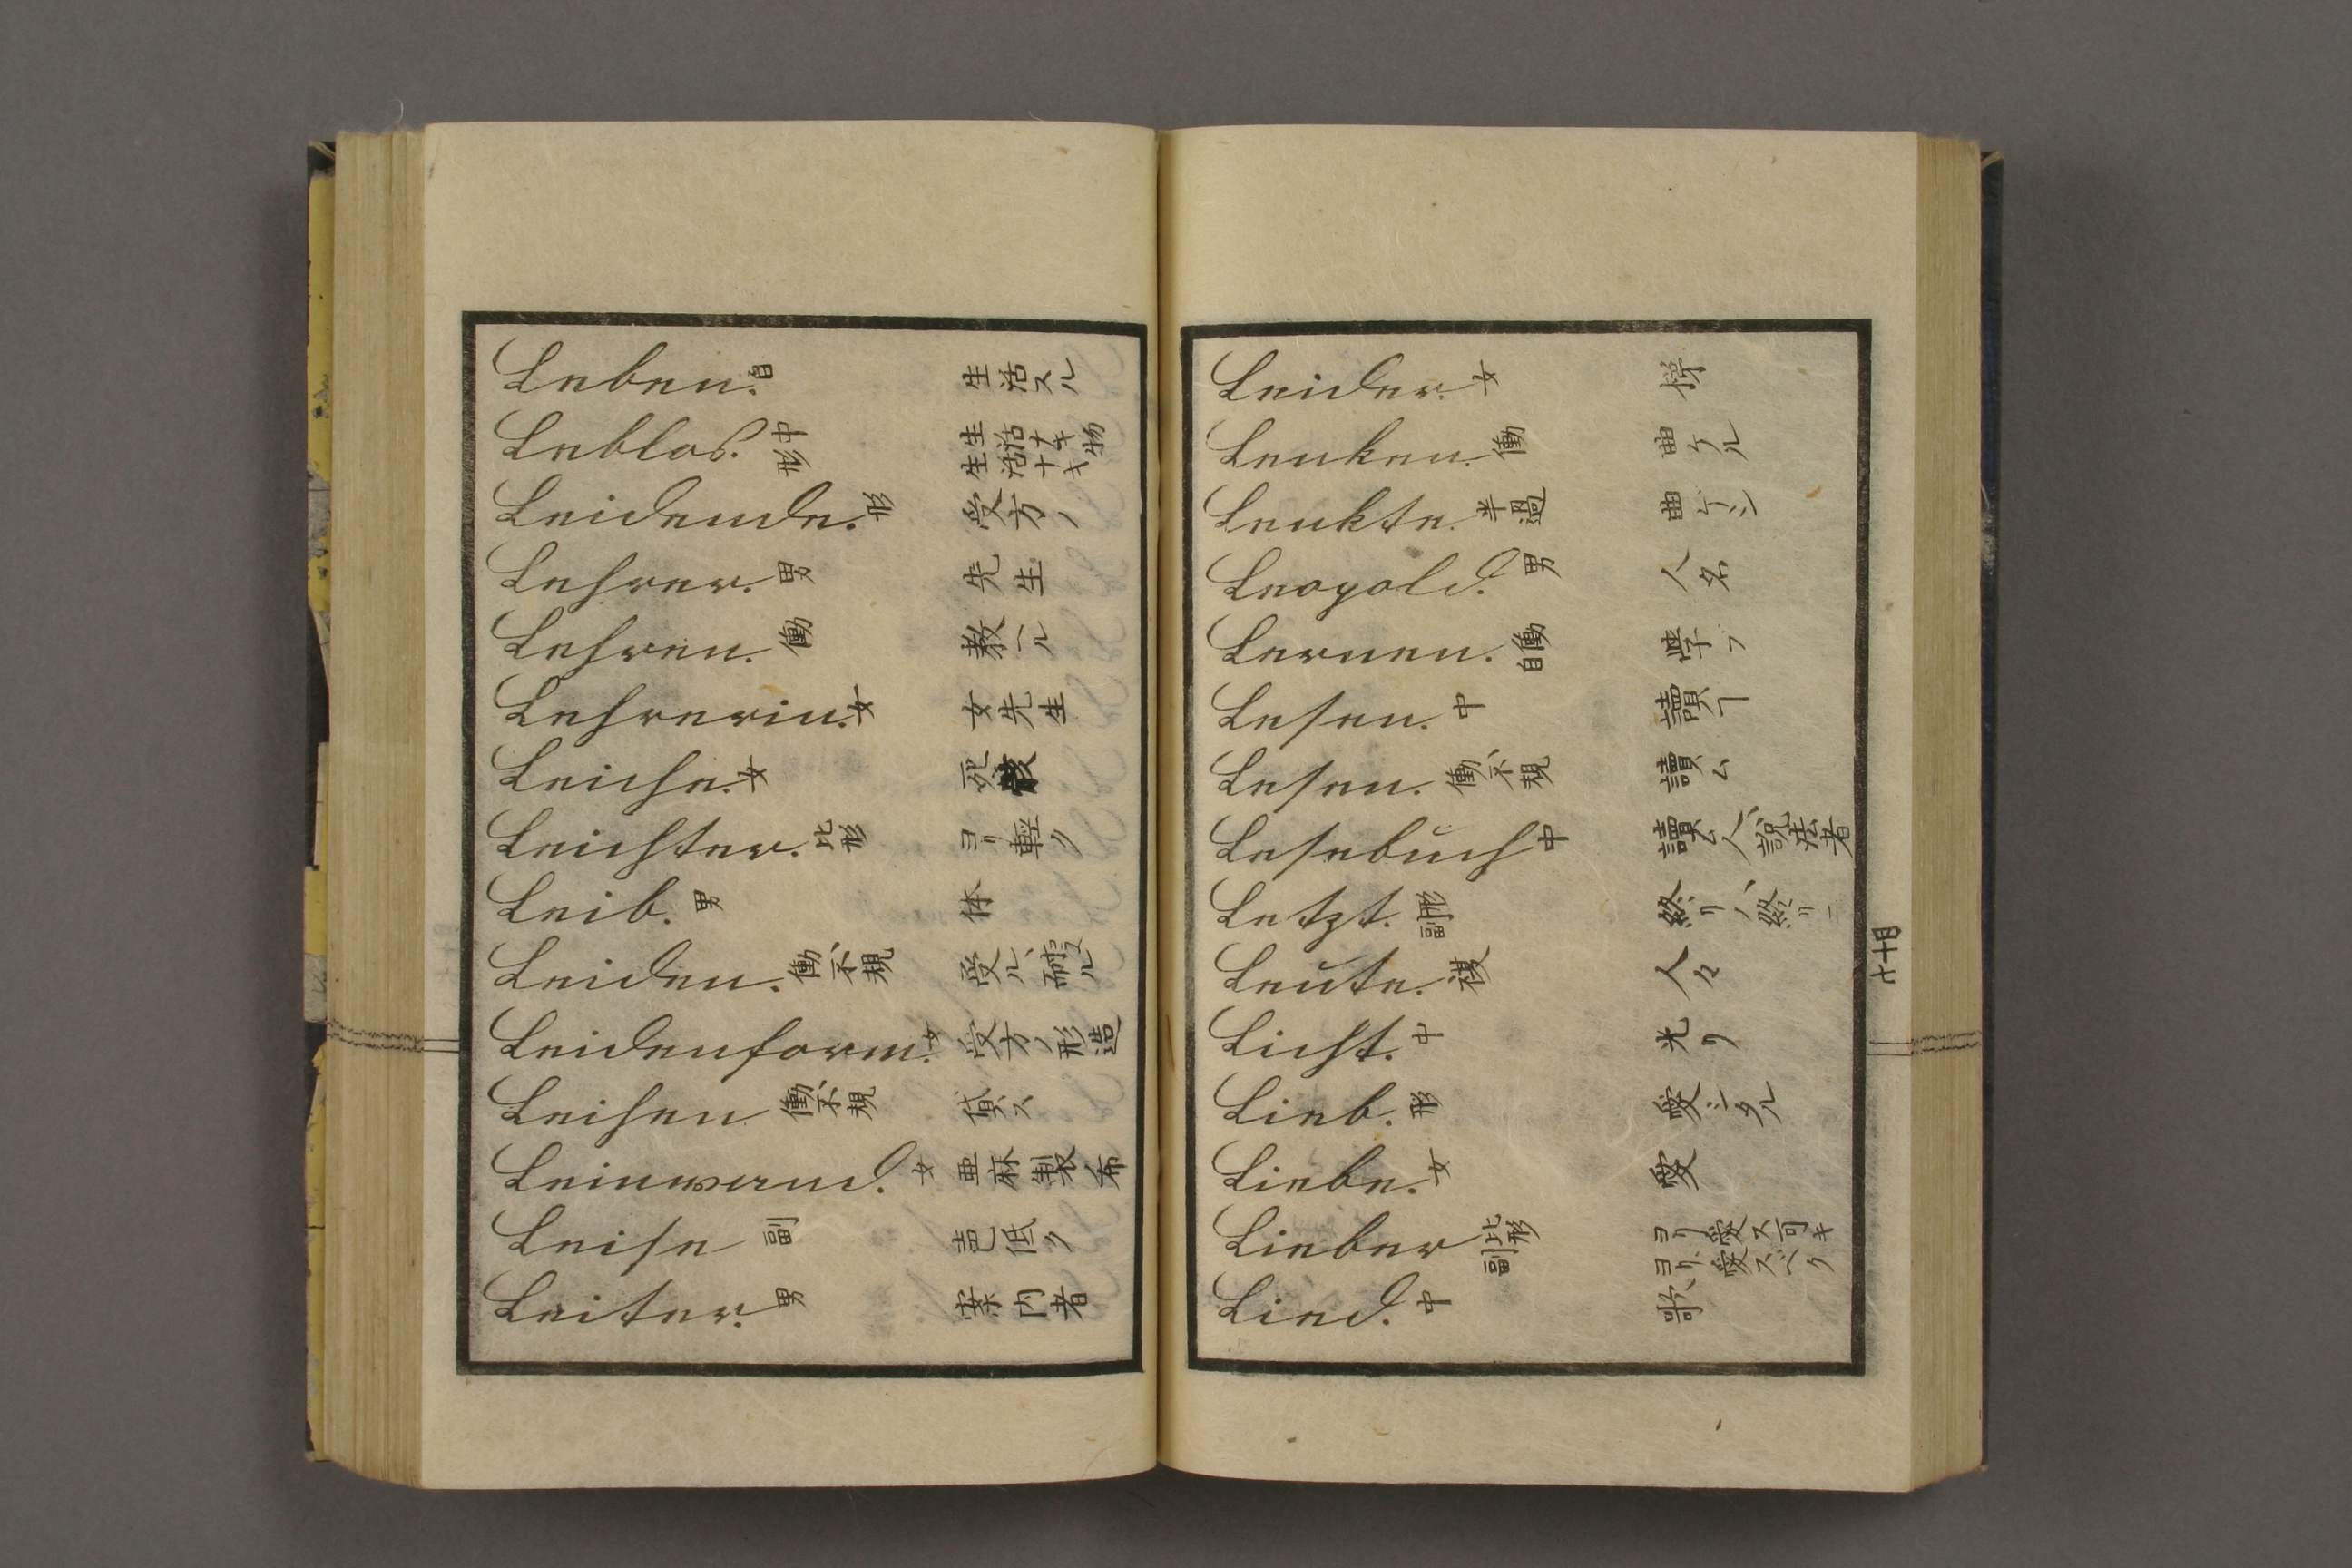 Leben. 自 生活スル
Leblos. 中形 生活ナキ物 生活ナキ
Leidende. 形 受方ノ
Lehrer. 男 先生
Lehren. 働 教ヘル
Lehrerin. 女 女先生
Leiche. 女 死
Leichter. 比形 ヨリ軽ク
Leib. 男 体
Leiden. 働、不規 受ル、耐ヱル
Leidenform. 女 受方ノ形造
Leihen 働、不規 貸ス
Leinwand. 女 亜麻製布
Leise 副 低ク
Leiter. 男 案内者
Leider. 女 梯
Lenken. 働 曲ケル
Lenkte. 半過 曲ケシ
Leopold. 男 人名
Lernen. 働自 学フ
Lesen. 中 讀ヿ
Lesen. 働、不規 讀ム
Lesebuch 中 讀ム人、説法者
Letzt. 形副 終リノ、終リニ
Leute. 複 人々
Licht. 中 光リ
Lieb. 形 愛シタル
Liebe. 女 愛
Lieber 比形副 ヨリ愛ス可キ ヨリ愛スベク
Lied. 中 歌